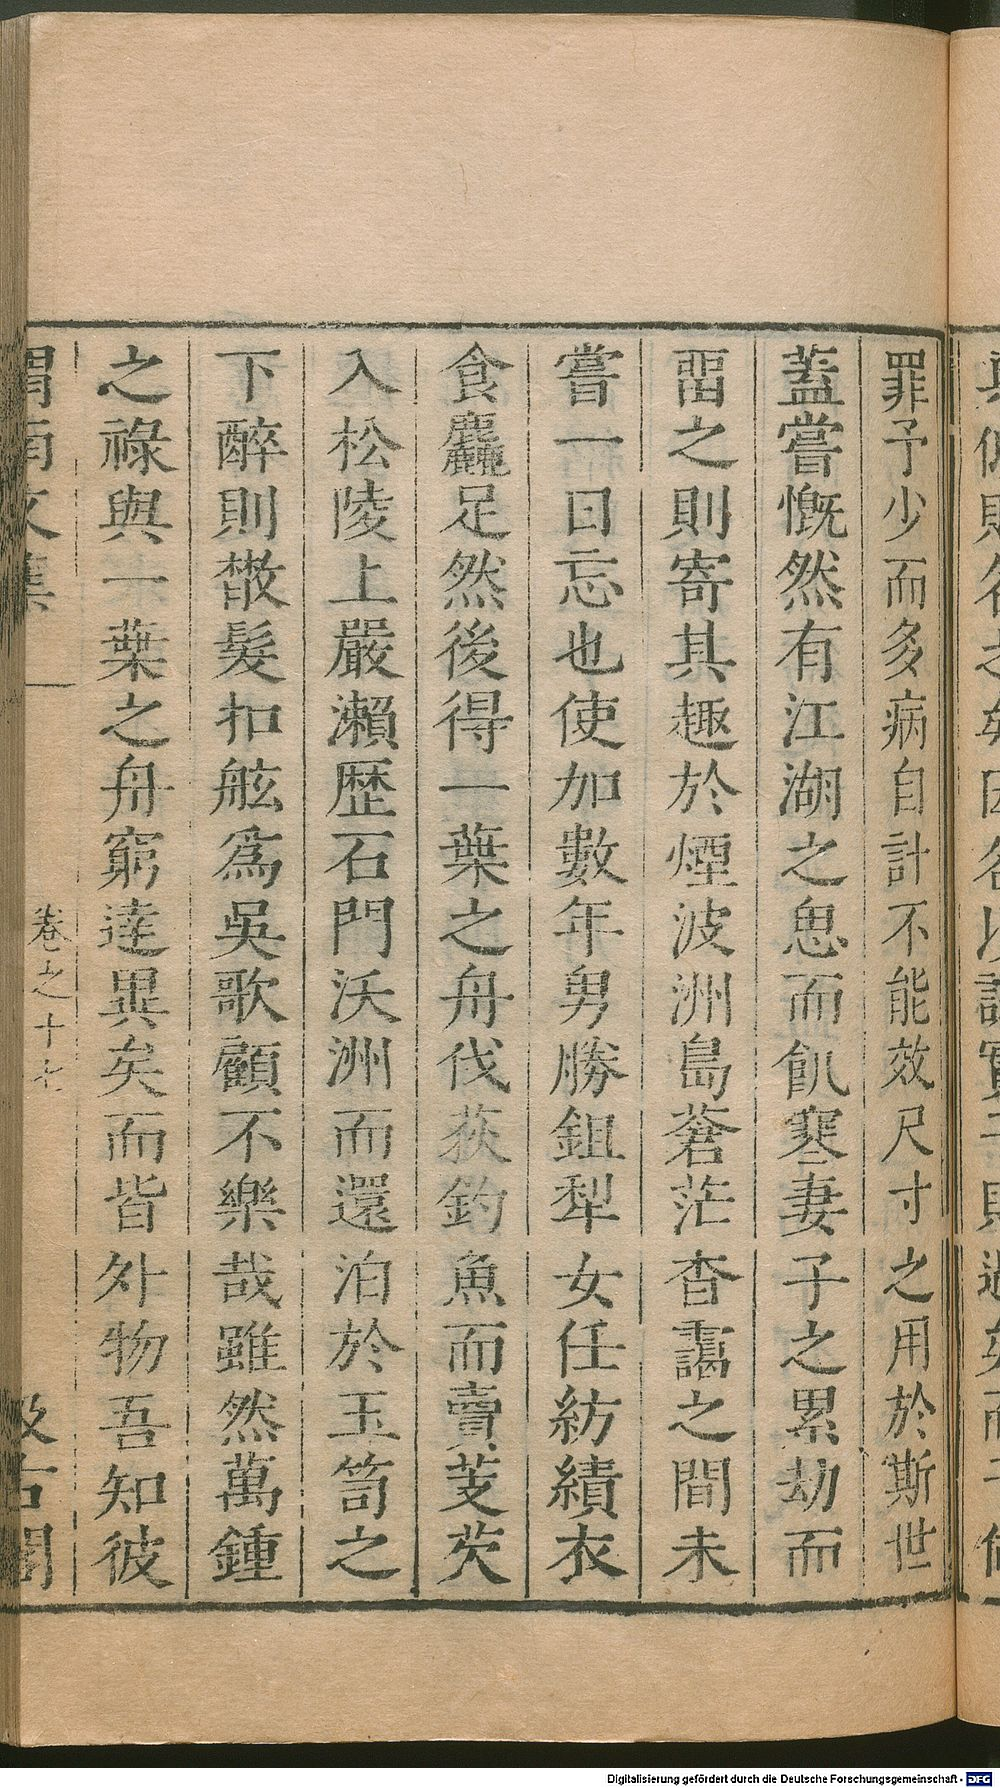 罪予少而多病自計不能效尺寸之用於斯世
蓋嘗慨然有江湖之思而飢寒妻子之累劫而
畱之則寄其趣於煙波洲島蒼茫杳靄之間未
嘗一日忘也使加數年男勝鉏犁女任紡績衣
食麤足然後得一葉之舟伐荻釣魚而賣芰芡
入松陵上嚴瀨歷石門沃洲而還泊於玉笥之
下醉則散髮扣舷爲吳歌顧不樂哉雖然萬鍾
之祿與一葉之舟窮達異矣而皆外物吾知彼
渭南文集
卷之十七
汲古閣
Digitalisierung gefördert durch die Deutsche Forschungsgemeinschaft - DFG